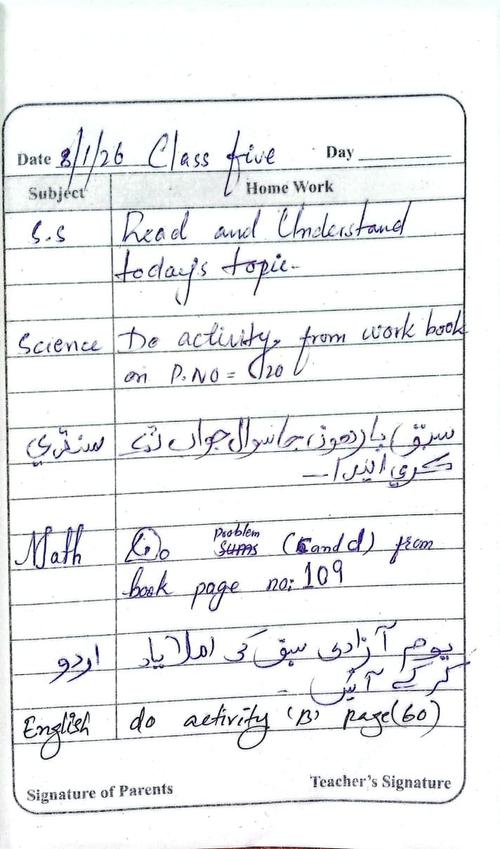 Date 8/1/26 Class five Day
Subject Home Work
S.S Read and Understand
today's topic.
Science Do activity from work book
on P.NO = 120
سنڌي سبق ٻارڙهون جا سوال جواب
ڪري اچو
Math Do Problem Sums (c and d) from
book page no: 109
اردو يوم آزادی سبق کی املا یاد
کر کے آئیں -
English do activity (B) page (60)
Signature of Parents Teacher's Signature